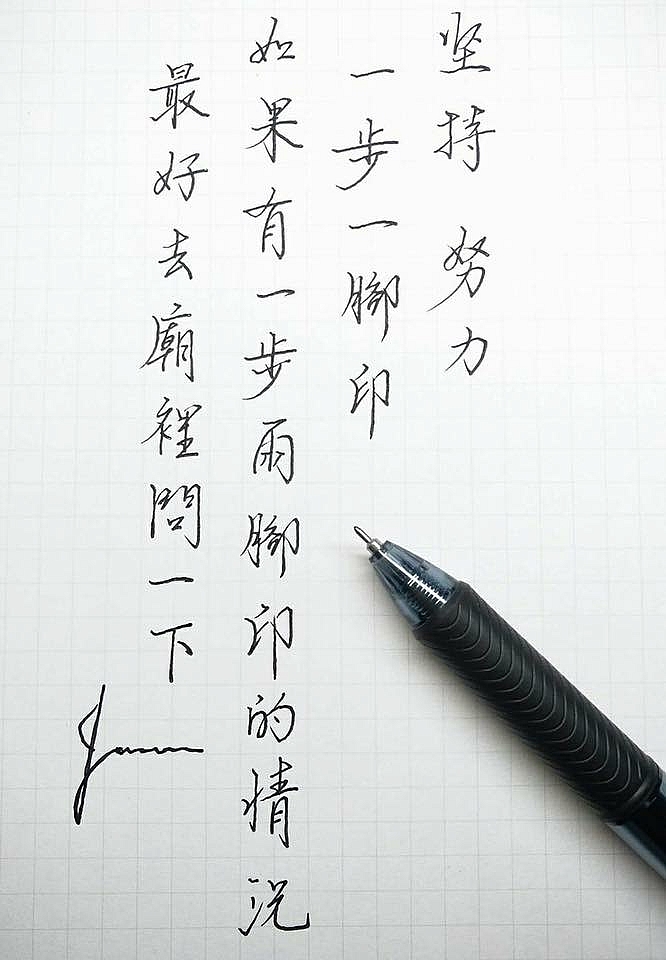 坚持 努力
一步一腳印
如果有一步兩腳印的情況
最好去廟裡問一下